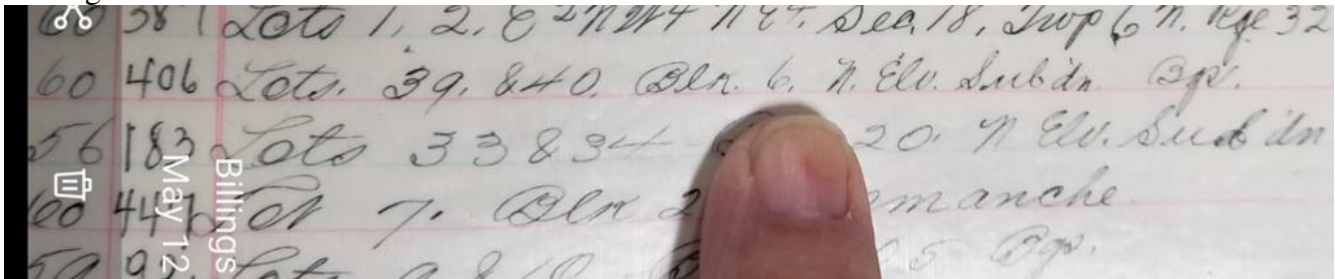 60 387 Lots 1, 2, E2 NW4 NE4. Sec. 18, Twp 6 N. Rge 32
60 406 Lots. 39. & 40. Blk. 6. N. Elv. Subdn Bg.
56 183 Lots 33 & 34 20 N Elv. Subdn
60 447 Lot 7. Blk 2 manche
59 9 Lots 9 & 10 5 Bgs.
Billings
May 12